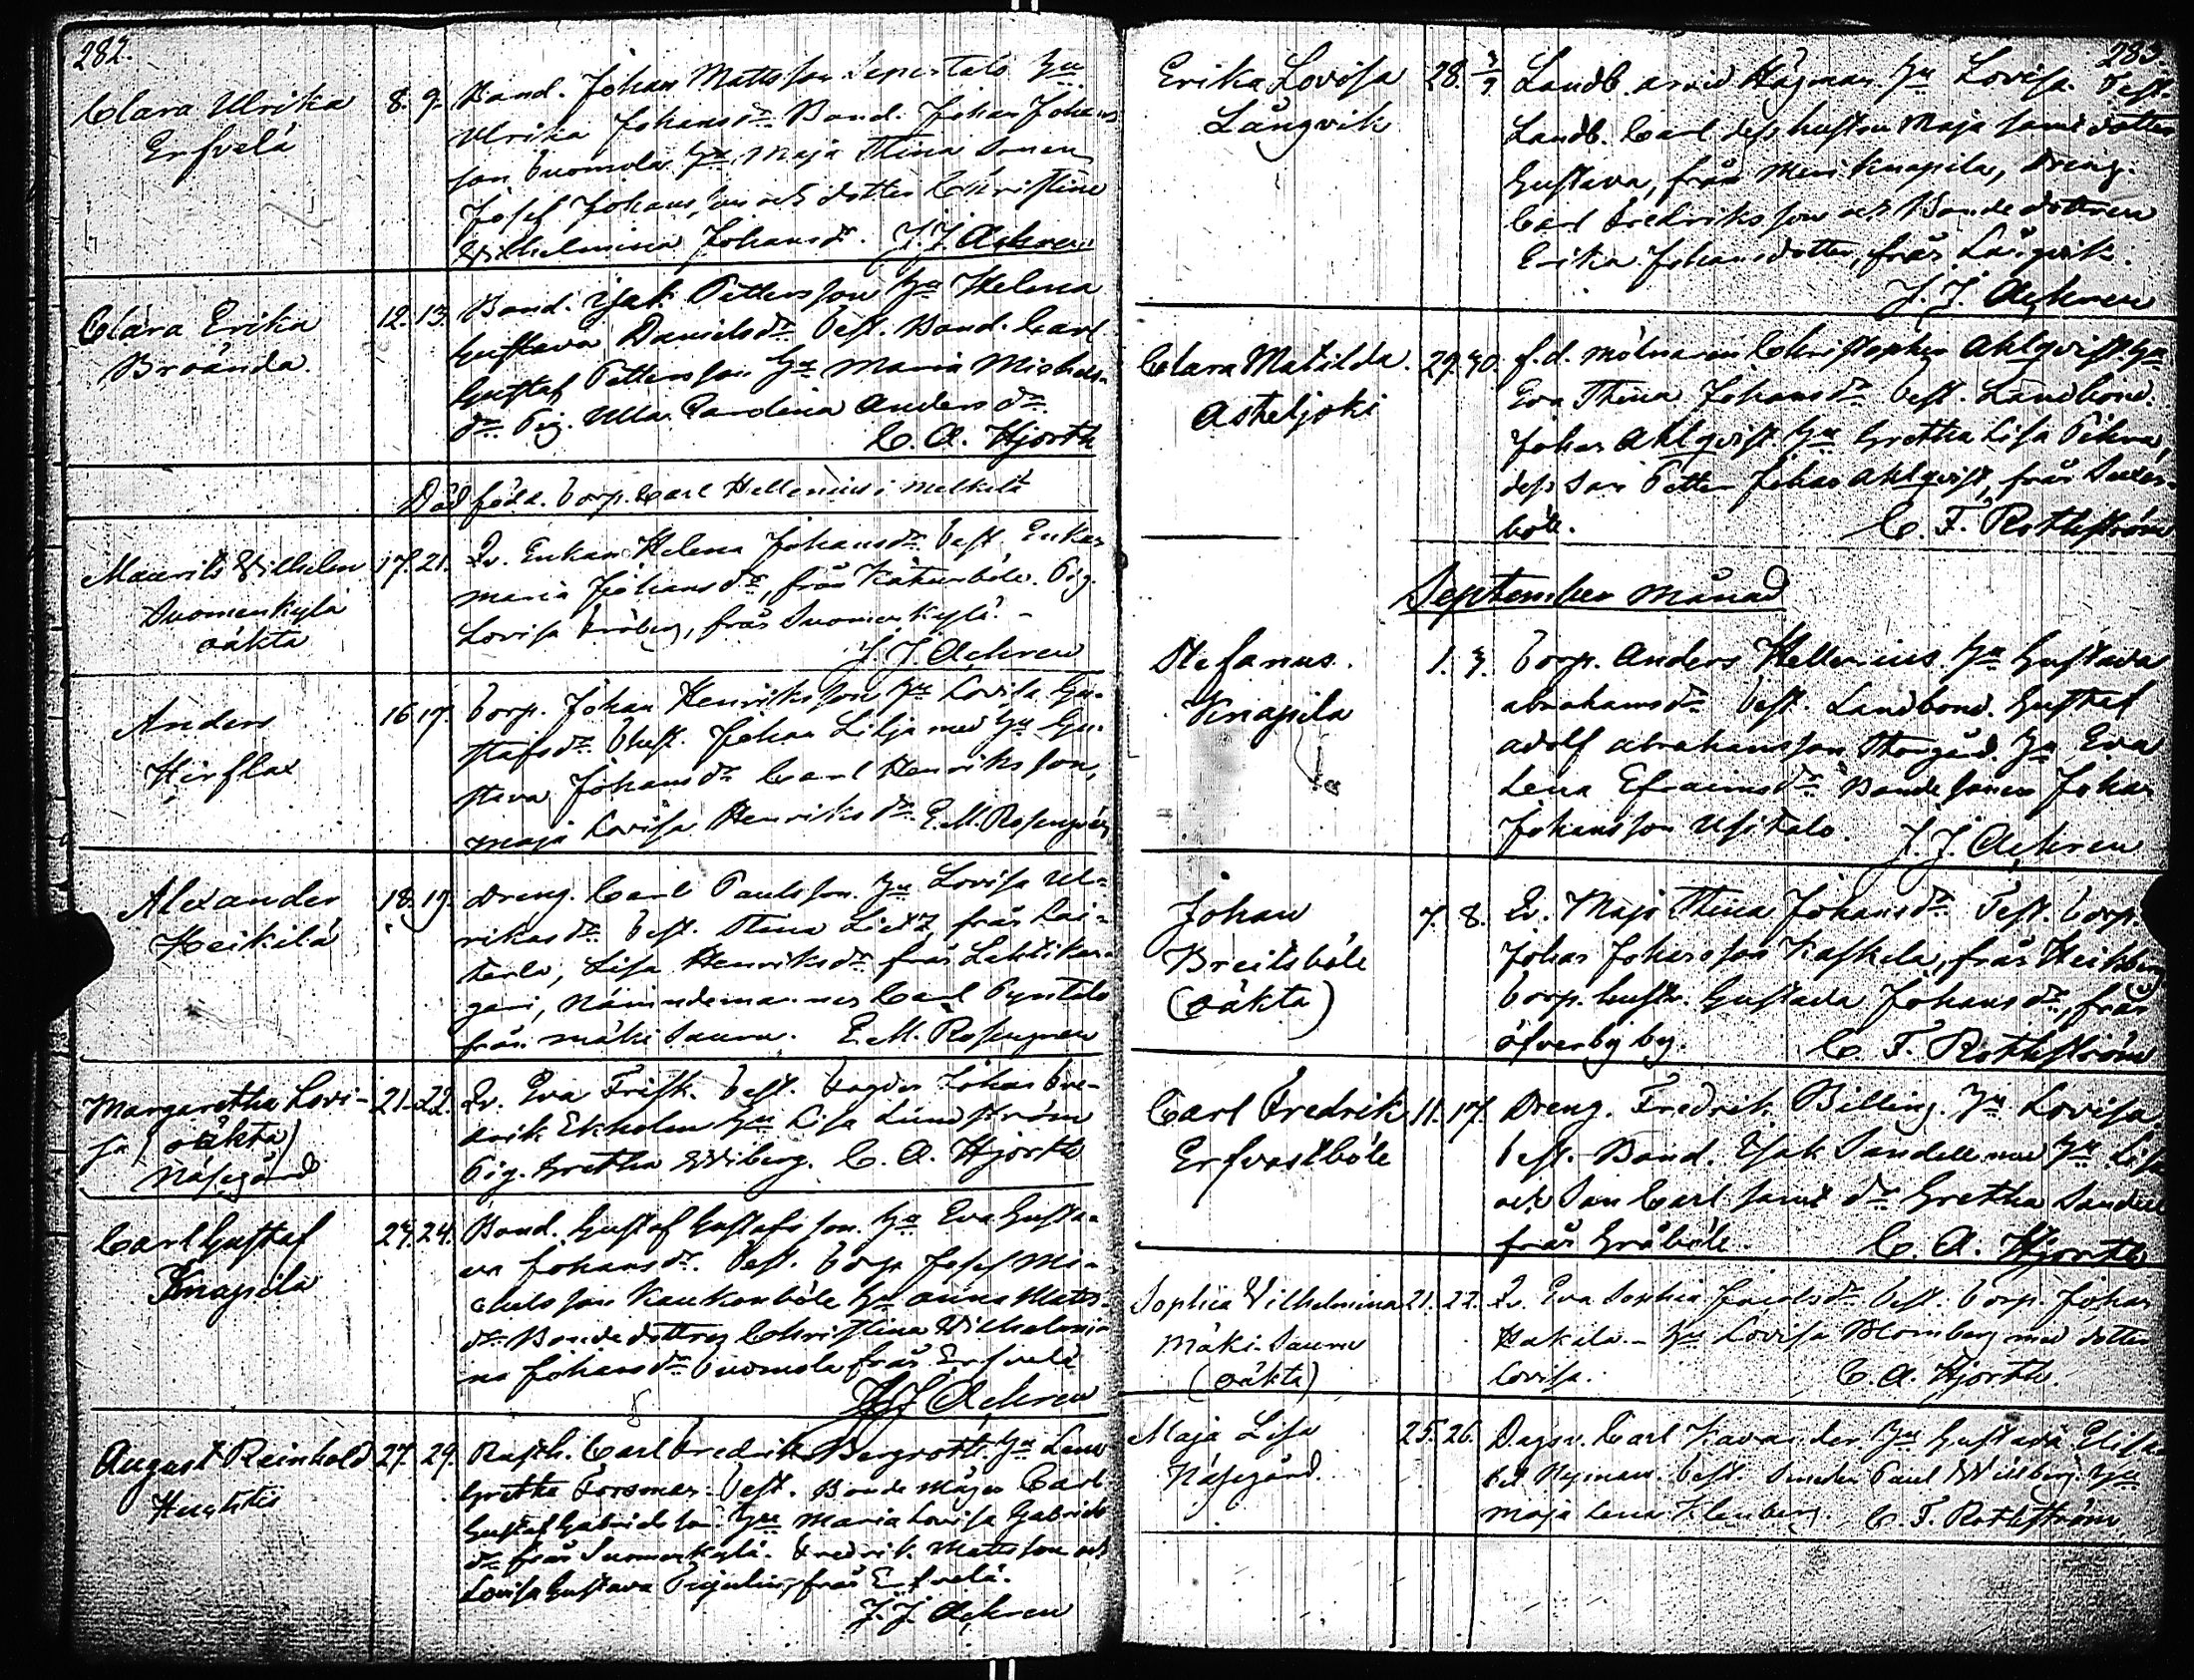 282.
Clara Ulrika
Erfvelä
8. 9.
Bond. Johan Mattsson Sepestalo Hu
Ulrika Johansdr. Bond. Johan Johans
son Tuomola Hu Maja Stina Sonen
Josef Johansson och dotter Christina
Wilhelmina Johansdr. J. J. Achren
Clara Erika
Broända
12. 13.
Bond. Isak Pettersson Hu Helena
Gustava Danielsdr. Test. Bond. Carl
Gustaf Pettersson Hu Maria Michels-
dr. Pig. Ulla Carolina Andersdr.
C. A. Hjorth
Död född. Torp. Carl Hellenius i Melkilä
Maurits Wilhelm
Suomenkylä
oäkta
17. 21.
Qv. Enkan Helena Johansdr. Test. Enkan
Maria Johansdr., från Katurböle. Pig.
Lovisa Fröberg, från Suomenkylä. -
J. J. Achren
Anders
Hirflax
16. 17.
Torp. Johan Henriksson Hu Lovisa Gu-
stafsdr. Test. Johan Lilja med Hu Gu-
stava Johansdr. Carl Henriksson,
Maja Lovisa Henriksdr. E. M. Rosengren
Alexander
Heikilä
18. 19.
Dreng. Carl Paulsson Hu Lovisa Ul-
rikasdr. Test. Stina Lietz, från
Lisa Henriksdr från
Nämndemannen Carl Pyntälö
från Mäki Sauru. E. M. Rosengren
Margaretha Lovi-
sa (oäkta)
Näsegård
21. 22.
Qv. Eva Frisk. Test. Fogden Johan Fre-
drik Ekholm Hu Lisa Lundström
Pig. Gretha Wiberg. C. A. Hjorth
Carl Gustaf
Knapila
23. 24.
Bond. Gustaf Gustafsson Hu Eva Gusta-
va Johansdr. Test. Torp. Josef Mi-
chelsson Kaukonböle Hu Anna Matts-
dr. Bondedottren Christina Wilhelmi-
na Johansdr Tuomola från Erfvelä
J. J. Achren
August Reinhold
Huktis
27. 29.
Rusth. Carl Fredrik Bergroth Hu Lena
Gretha Forsman. Test. Bonde Mågen Carl
Gustaf Gabrielsson Hu Maria Lovisa Gabriels
dr från Suomenkylä. Fredrik Mattsson och
Lovisa Gustava från Erfvelä.
J. J. Achren
283.
Erika Lovisa
Långvik
28.
Landb. Arvid Hägman Hu Lovisa. Test.
Landb. Carl dess hustru Maja samt dotter
Gustava, från Meri Knapila, Dreng.
Carl Fredriksson och Bondedottren
Erika Johansdotter, från Långvik.
J. J. Achren
Clara Matilda
Askeljoki
29. 30.
f. d. Mölnaren Christopher Ahlqvist Hu
Eva Stina Johansdr Test. Landbond.
Johan Ahlqvist Hu Gretha Lisa
dess Son Petter Johan Ahlqvist, från
böle. C. F. Rothström
September Månad
Stefanus
Knapila
1. 3.
Torp. Anders Hellenius Hu Gustava
Abrahamsdr Test. Landbond. Gustaf
Adolf Abrahamsson Storgård Hu Eva
Lena Efraimsdr Bonde Sonen Johan
Johansson Usitalo. J. J. Achren
Johan
Breitsböle
(oäkta)
7. 8.
Qv. Maja Stina Johansdr Test. Torp.
Johan Johansson Kaskela, från Heikberg
Torp. hustr. Gustava Johansdr., från
Öfverby by. C. F. Rothström
Carl Fredrik
Erfvastböle
11. 17.
Dreng. Fredrik Billing Hu Lovisa.
Test. Bond. Isak Sandell med Hu Lisa
och Son Carl samt dr Gretha Sandell
från Gråböle. C. A. Hjorth
Sophia Wilhelmina
Mäki Sauru
(oäkta)
21. 22.
Qv. Eva Sophia Test. Torp. Johan
Hakala - Hu Lovisa Blomberg med dotter
Lovisa. C. A. Hjorth.
Maja Lisa
Näsegård
25. 26.
Dagsv. Carl Kavander Hu Gustava Elisa-
bet Nyman. Test. Smeden Paul Wilsberg Hu
Maja Lena Klenberg. C. F. Rothström